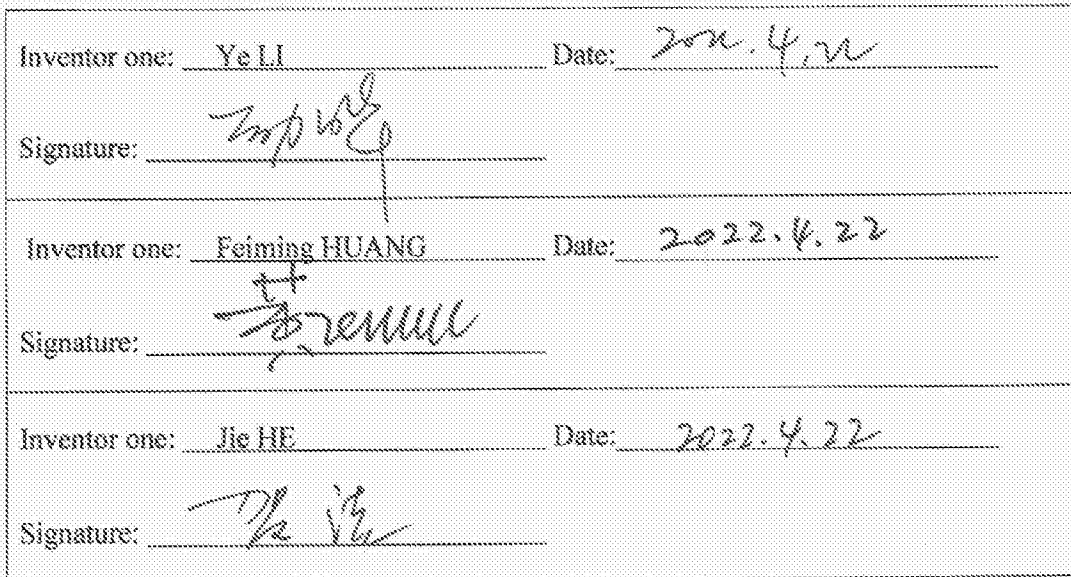 Inventor one: Ye LI Date: 2022.4.22
Signature:
Inventor one: Feiming HUANG Date: 2022.4.22
Signature: 黄
Inventor one: Jie HE Date: 2022.4.22
Signature: